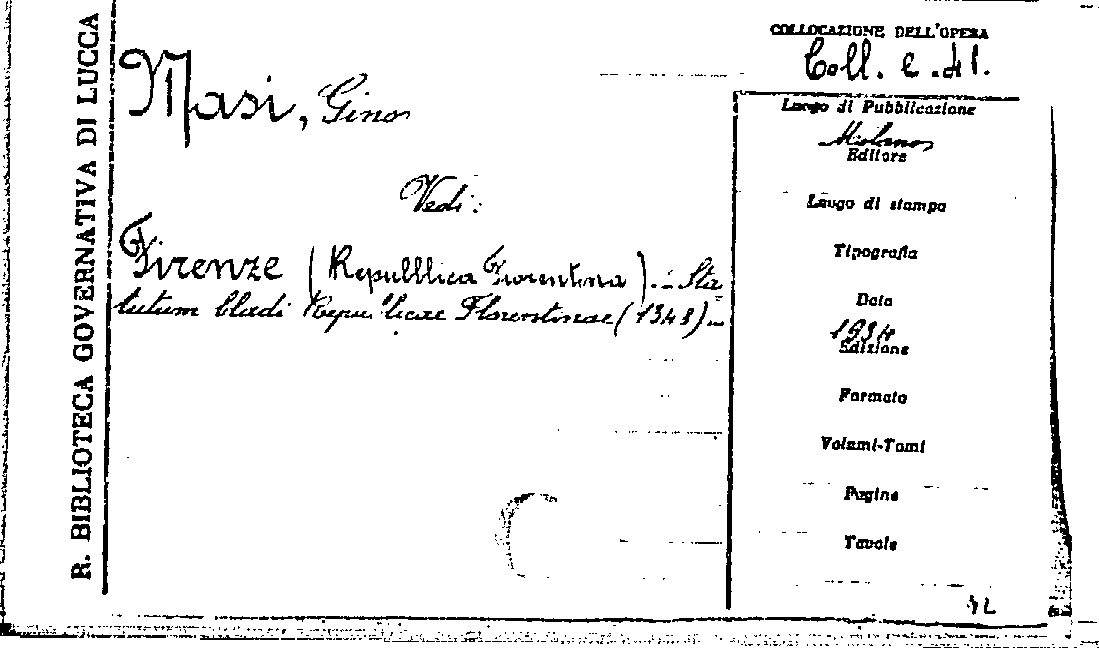 R. BIBLIOTECA GOVERNATIVA DI LUCCA
COLLOCAZIONE DELL'OPERA
Coll. e. 41.
Masi, Gino
Vedi:
Firenze (Repubblica Fiorentina). - Sta
tutum bladi Republicae Florentinae (1348) -
Luogo di Pubblicazione
Milano
Editore
Luogo di stampa
Tipografia
Data
1934
Edizione
Formato
Volumi-Tomi
Pagine
Tavole